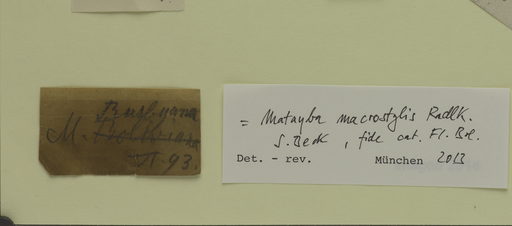 Rusbyana
M.
VI. 93.
= Matayba macrostylis Radlk.
S. Beck, fide cat. Fl. Bol.
Det. - rev. München 2013